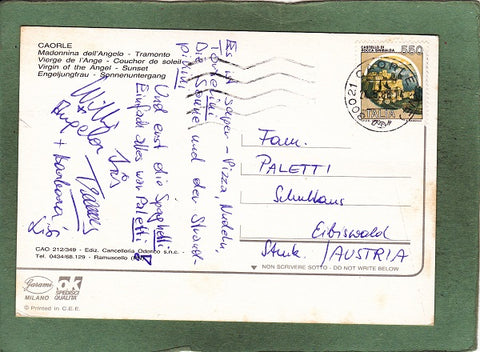 CAORLE
Madonnina dell'Angelo - Tramonto
Vierge de l'Ange - Coucher de soleil
Virgin of the Angel - Sunset
Engeljungfrau - Sonnenuntergang
CASTELLO DI
ROCCA SINIBALDA
550
ITALIA
30021 CAORLE
Es ist super - Pizza, Nudeln,
Die Sonne und der Strand -
Und erst die Spaghetti
Einfach alles wir Paletti!
Fam.
PALETTI
Schulhaus
Eibiswald
Stmk. /AUSTRIA
CAO 212/349 - Ediz. Cancelleria Odorico s.n.c. -
Tel. 0434/68.129 - Ramuscello
NON SCRIVERE SOTTO - DO NOT WRITE BELOW
Garami
MILANO
OK
SPEDISCI
QUALITÀ
© Printed in C.E.E.